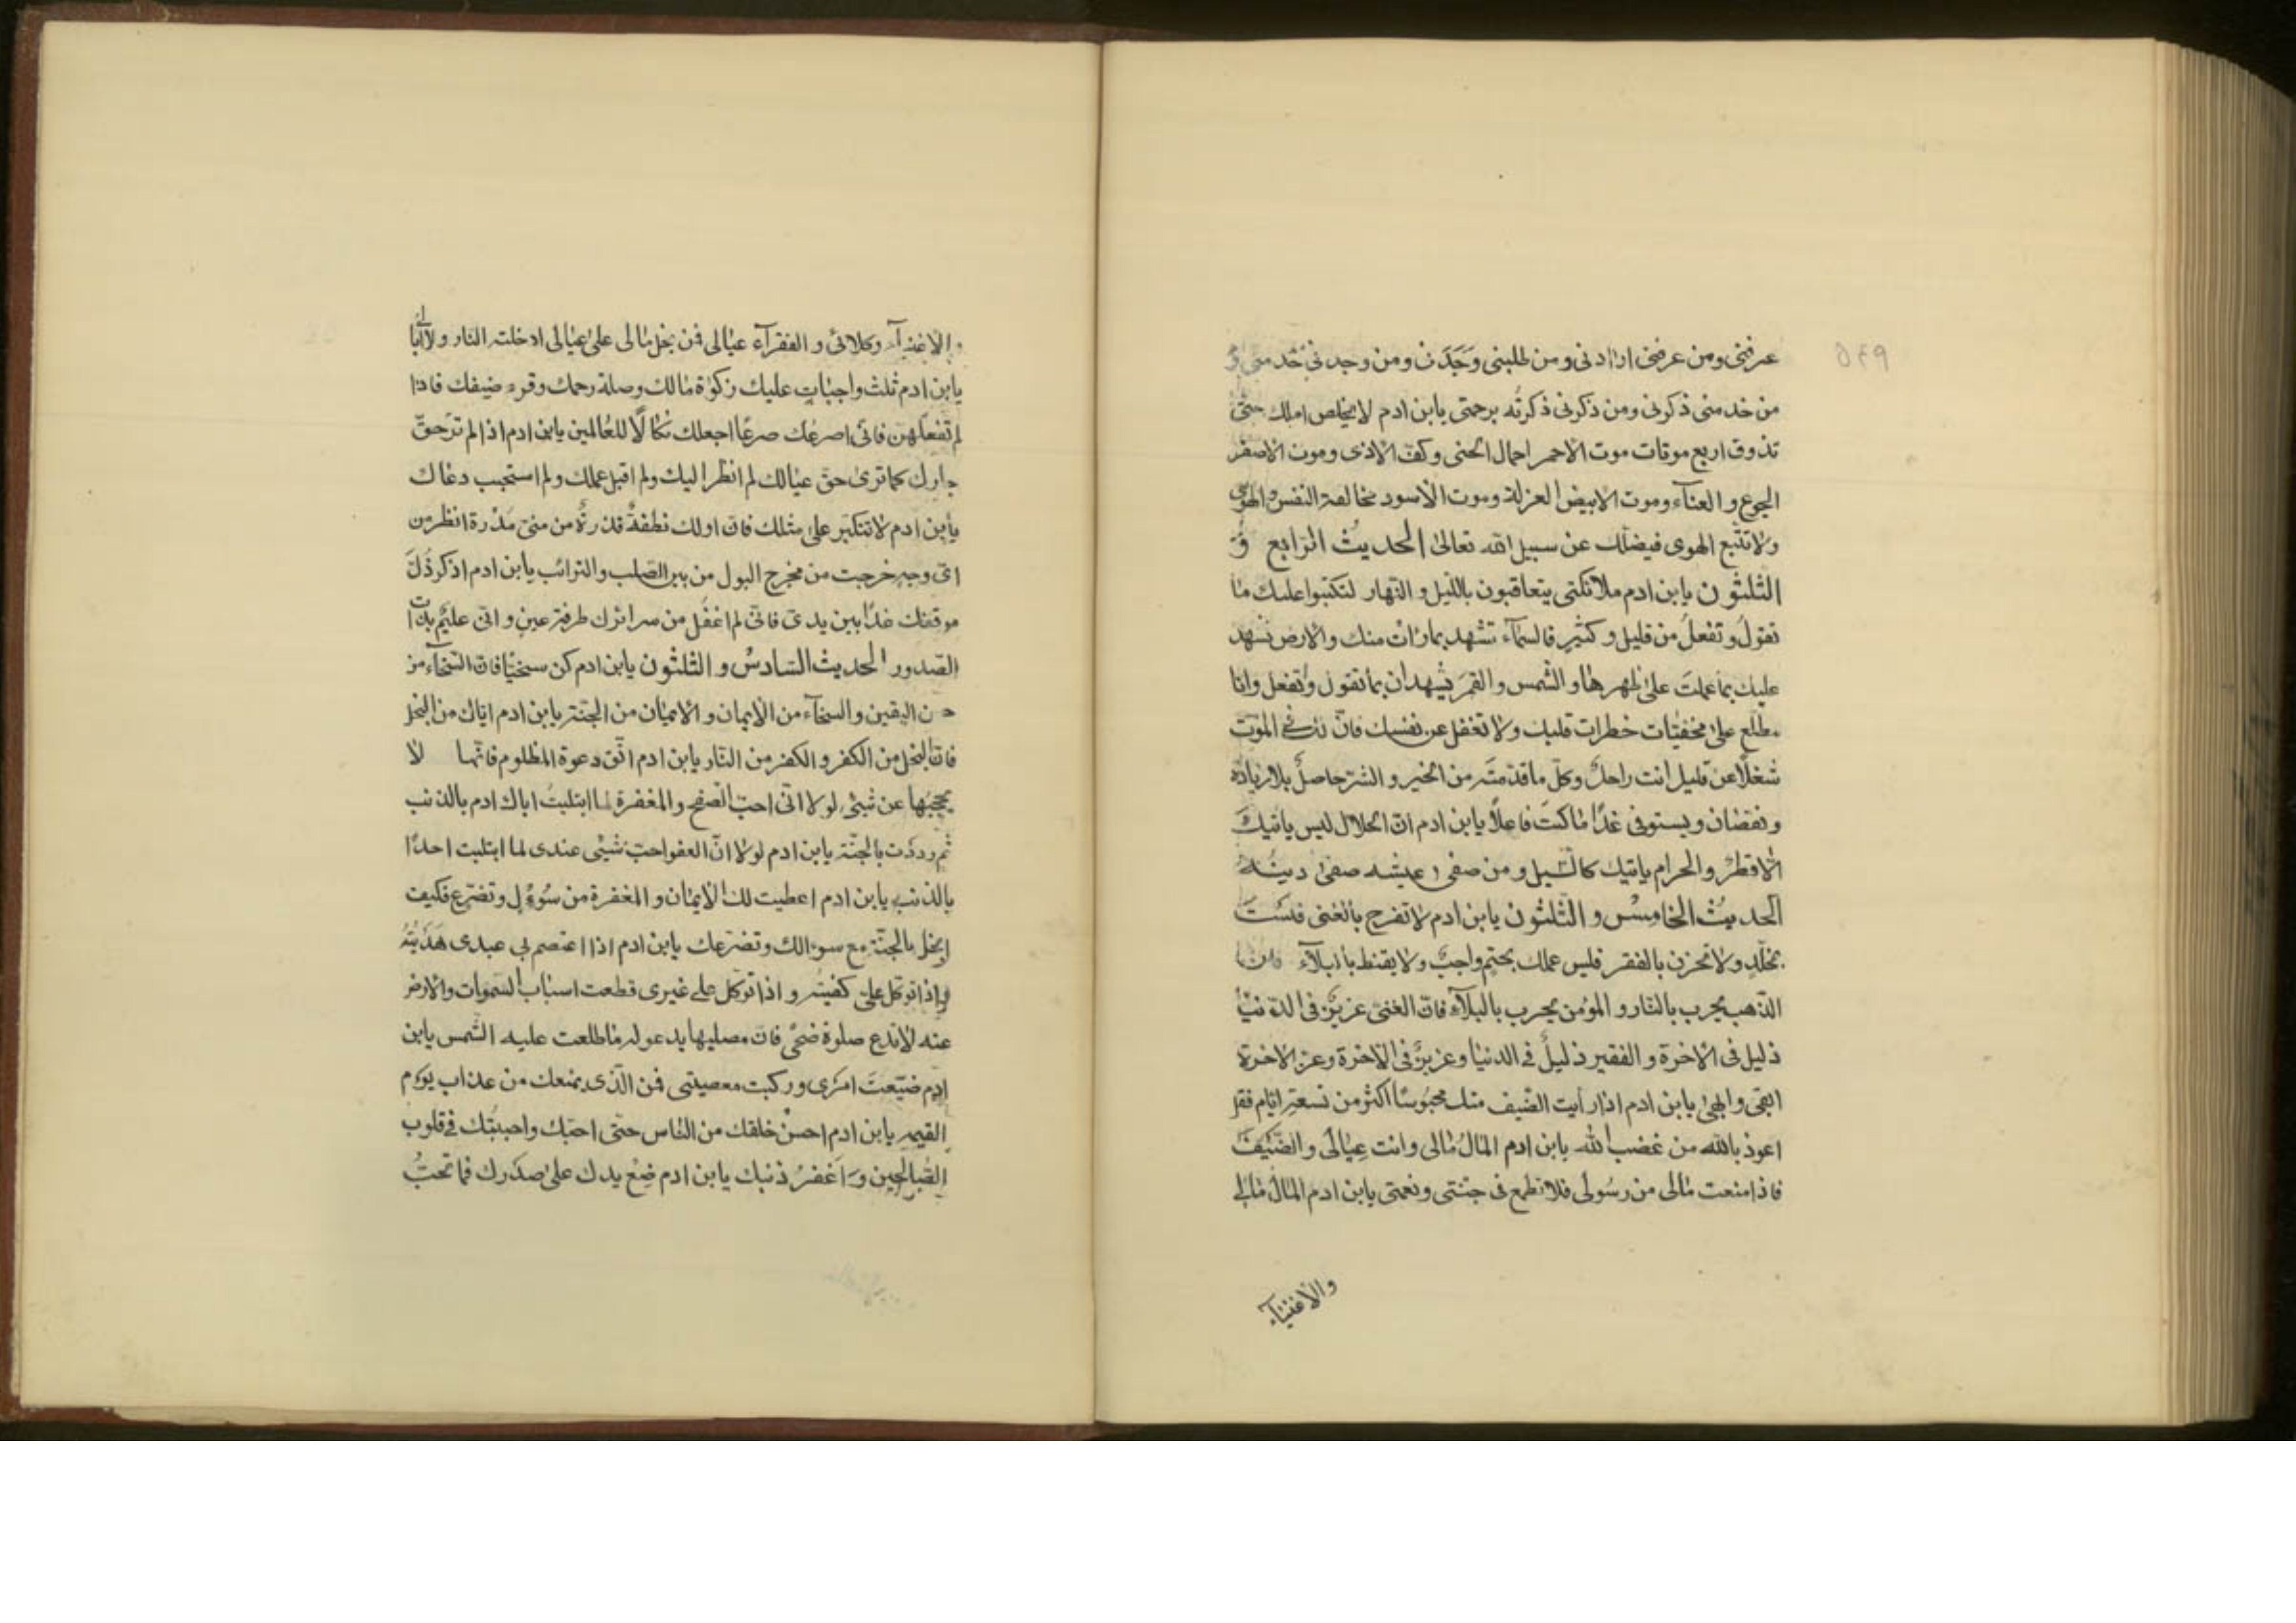 عرفنى ومن عرفنى ارادنى ومن طلبنى وَجَدَنى ومن وجدنى خدمنى و
من خدمنى ذكرنى ومن ذكرنى ذكرتُه برحمتى يابن ادم لا يخلص املك حتّىٰ
تذوق اربع موتات موت الاحمر احمال الحنى وكفّ الاذى وموت الاصفر
الجوع والعناء وموت الابيض العزلة وموت الاسود مخالفة النفس والهوىٰ
ولا تتّبع الهوى فيضلّك عن سبيل الله تعالىٰ الحديثُ الرّابع وَ
الثلثون يابن ادم ملائكتى يتعاقبون باللّيل و النّهار لتكتبوا عليك ما
تقولُ وتفعلُ من قليل وكثيرٍ فالسمآء تشهد بما رات منك والارض تشهد
عليك بما عملتَ علىٰ ظهرها والشّمس والقمرَ يشهدان بما تقول وتفعل وانا
مطّلع علىٰ مخفيّات خطرات قلبك ولا تغفل عن نفسك فانّ لك فى الموت
شغلًا عن قليل انت راحلٌ وكلّ ما قدّمتَه من الخير و الشر حاصلٌ بلا زيادة
ونقصان ويستوفى غدًا ما كنتَ فاعلًا يابن ادم انّ الحلال ليس ياتيكَ
الّا قطرٌ والحرام ياتيك كالسّيل ومن صفىٰ عيشه صفىٰ دينُهُ
الحديثُ الخامِسُ و الثلثون يابن ادم لا تفرح بالغنى فلستَ
بمخلّدٍ ولا تحزن بالفقر فليس عملك بحتمٍ واجبٌ ولا يقنط بالبلآء فانّ
الذّهب يجرب بالنار و المؤمن يجرب بالبلآء فانّ الغنىّ عزيزٌ فى الدّنيا
ذليل فى الاخرة و الفقير ذليلٌ فى الدنيا وعزيزٌ فى الاخرة وعزّ الاخرة
ابقى وابهىٰ يابن ادم اذا رأيت الضّيف منك محبُوسًا اكثر من تسعة ايّام فقل
اعوذ بالله من غضب الله يابن ادم المالُ مالى وانت عِيالى والضّيفَ
فاذا منعت مالى من رسولى فلا تطمع فى جنّتى ونعمتى يابن ادم المالُ مالى
والاغنيآء
والاغنيآء وكلائى و الفقرآء عيالى فمن بخل مالى علىٰ عيالى ادخلته النار ولا اُبالى
يابن ادم ثلث واجبات عليك زكوٰة مالك وصلة رحمك وقرى ضيفك فاذا
لم تفعلهن فانّى اصرعُك صرعًا اجعلك نكالًا للعالمين يابن ادم اذا لم ترَ حقّ
جارك كما ترىٰ حق عيالك لم انظر اليك ولم اقبل عملك ولم استجب دعاك
يابن ادم لا تتكبّر علىٰ مثلك فانّ اولك نطفةٌ قذرةٌ من منىّ مَذرة انظر من
اىّ وجهٍ خرجت من مخرج البول من بين الصلب والترائب يابن ادم اذكر ذُلّ
موقفك غدًا بين يدىّ فانّى لم اغفل من سرائرك طرفة عينٍ و انّى عليمٌ بذات
الصّدور الحديث السّادسُ و الثلثون يابن ادم كن سخيّا فانّ السّخآء من
حسن اليقين والسخآء من الايمان و الايمان من الجنّة يابن ادم ايّاك من البخل
فانّ البخل من الكفر و الكفر من النّار يابن ادم اتّق دعوة المظلوم فانّها لا
يحجبُها عن شئى لولا انّى احبّ الصّفح والمغفرة لما ابتليتُ اباك ادم بالذنب
ثم رددت بالجنّة يابن ادم لولا انّ العفو احبّ شيئى عندى لما ابتليت احدًا
بالذنب يابن ادم اعطيت لك الايمان و المغفرة من سُوءٍل وتضرّع فكيف
ابخل بالجنّة مع سوءالك وتضرّعك يابن ادم اذا اعتصم بى عبدى هَدَيتُهُ
واذا توكّل علىّ كفيتُه و اذا توكّل علىٰ غيرى قطعت اسباب السّمٰوات والارض
عنه لا تدع صلوة ضحىً فانّ مصليها يدعو له ما طلعت عليه الشّمس يابن
ادم ضيّعتَ امرى وركبت معصيتى فمن الّذى يمنعك من عذاب يوم
القيمة يابن ادم احسنْ خلقك من النّاس حتّى احبّك واحببتك فى قلوب
الصّالحين وَ اَغفرُ ذنبك يابن ادم ضِعْ يدك علىٰ صدرك فما تحبُّ